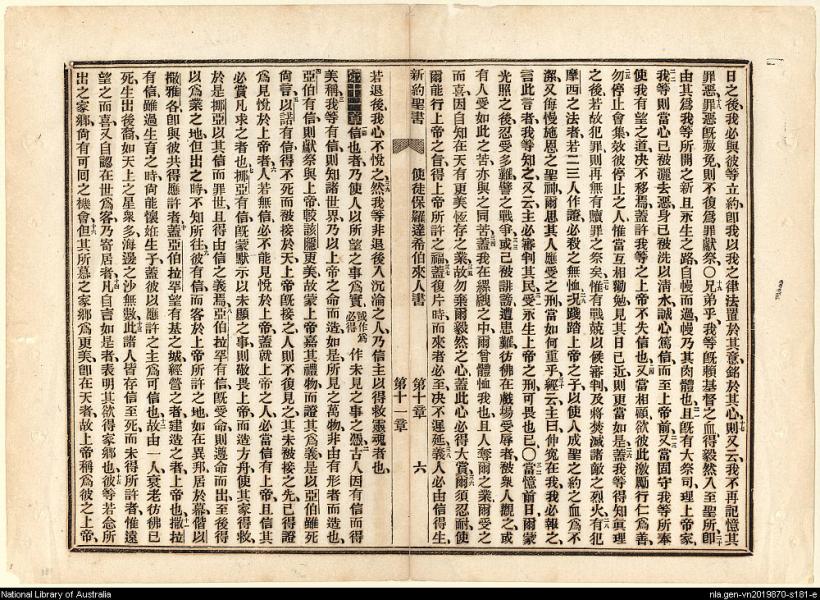 日之後我必與彼等立約卽我以我之律法置於其意銘於其心則又云我不再記憶其
罪惡罪惡旣蒙赦免則不復爲罪獻祭〇兄弟乎我等旣賴基督之血得毅然入至聖所卽
由其爲我等所開之新且永生之路自幔而過幔乃其肉體也且旣有大祭司理上帝家
我等則當心已被灑去惡身已被洗以清水誠心篤信而至上帝前又當固守我等所奉
使我有望之道決不移焉蓋許我等之上帝不失信也又當相顧欲彼此激勵行仁爲善
勿停止會集效彼停止之人惟當互相勸勉見其日已近則更當如是蓋我等得知眞理
之後若故犯罪則再無有贖罪之祭矣惟有戰兢以候審判及將焚滅諸敵之烈火有犯
摩西之法者若二三人作證必殺之無恤況踐踏上帝之子以使人成聖之約之血爲不
潔又侮慢施恩之聖神爾思其人應受之刑當如何重乎經云主曰伸寃在我我必報之
言此言者我等知之又云主必審判其民受永生上帝之刑可畏也已〇當憶前日爾蒙
光照之後忍受多難譬之戰爭或己被誹謗遭患難彷彿在戲場受辱者被衆人觀之或
有人受如此之苦亦與之同苦蓋我在縲絏之中爾曾體恤我也且人奪爾之業爾受之
而喜因自知在天有更美恆存之業故勿棄爾毅然之心蓋此心必得大賞爾須忍耐使
爾能行上帝之旨得上帝所許之福蓋復片時而來者必至決不遲延義人必由信得生
新約聖書 使徒保羅達希伯來人書 第十章 第十一章 六
若退後我心不悅之然我等非退後入沉淪之人乃信主以得救靈魂者也
第十一章信也者乃使人以所望之事爲實或作爲必得作未見之事之憑古人因有信而得
美稱我等有信則知諸世界乃以上帝之命而造如是所見之萬物非由有形者而造也
亞伯有信則獻祭與上帝較該隱更美故蒙上帝嘉其禮物而證其爲義是以亞伯雖死
尙言以諾有信得不死而被接於天上帝旣接之人則不復見之其未被接之先已得證
爲見悅於上帝者人若無信必不能見悅於上帝蓋就上帝之人必當信有上帝且信其
必賞凡求之者也挪亞有信旣蒙默示以未顯之事則敬畏上帝而造方舟使其家得救
於是挪亞以其信而罪世且得由信之義焉亞伯拉罕有信旣受命則遵命而出至後得
以爲業之地但出之時不知所往彼有信而客於上帝所許之地如在異邦居於幕偕以
撒雅各卽與彼共得應許者蓋亞伯拉罕望有基之城經營之者建造之者上帝也撒拉
有信雖過生育之時尙能懷妊生子蓋彼以應許之主爲可信也故由一人衰老彷彿已
死生出後裔如天上之星衆多海邊之沙無數此諸人皆存信至死而未得所許者惟遠
望之而喜又自認在世爲客乃寄居者凡自言如是者表明其欲得家鄉也彼等若念所
出之家鄉尙有可回之機會但其所慕之家鄉爲更美卽在天者故上帝稱爲彼之上帝
National Library of Australia
nla.gen-vn2019870-s181-e